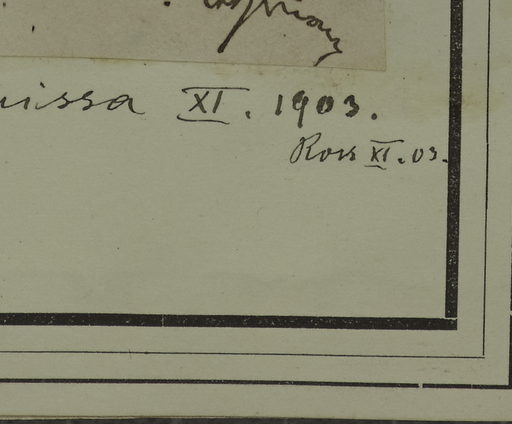 missa XI. 1903.
Ross XI.03.